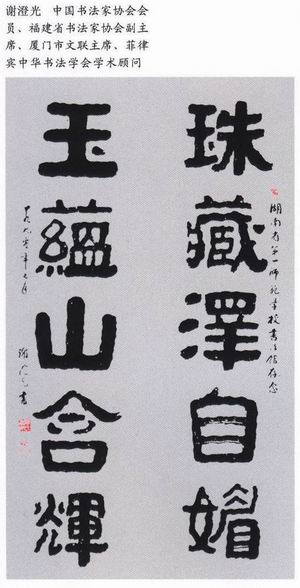 谢澄光 中国书法家协会会
员、福建省书法家协会副主
席、厦门市文联主席、菲律
宾中华书法学会学术顾问
珠藏澤自媚
湖南省第一师范学校書存念
玉蘊山含輝
一九九零年七月
謝澄光書